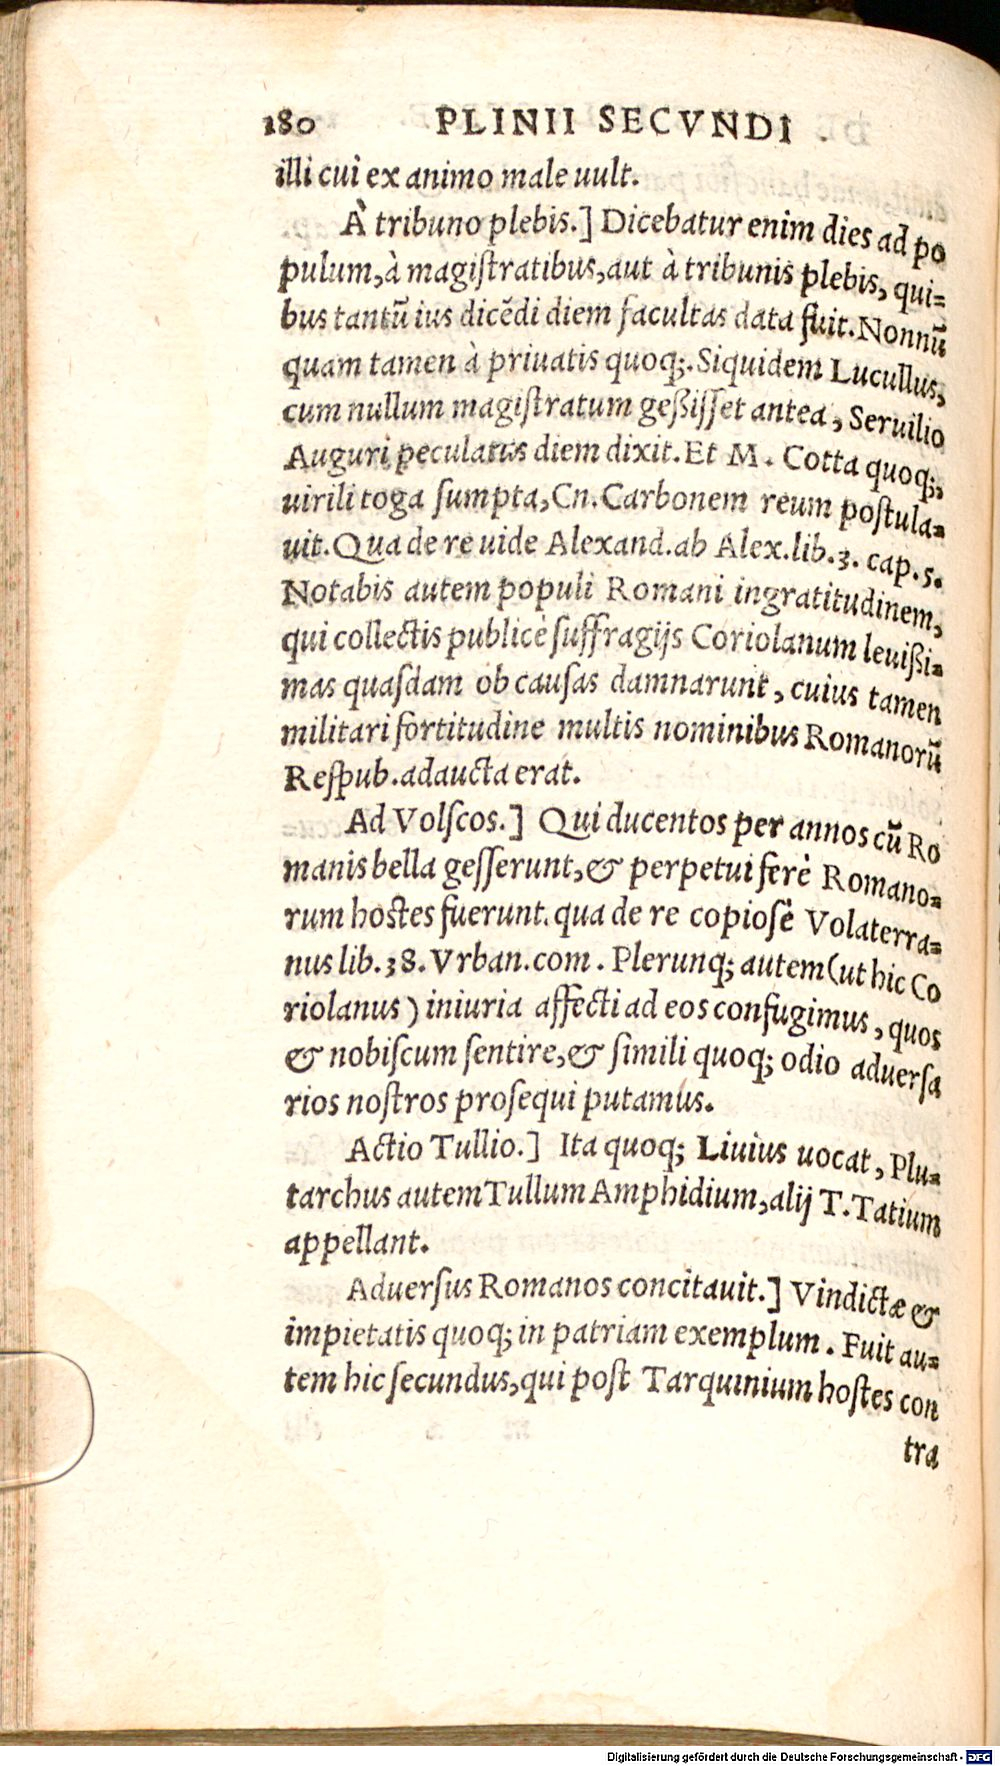 180 PLINII SECVNDI
illi cui ex animo male uult.
À tribuno plebis.] Dicebatur enim dies ad po
pulum, à magiſtratibus, aut à tribunis plebis, qui=
bus tantũ ius dicẽdi diem facultas data fuit. Nonnũ
quam tamen à priuatis quoq;. Siquidem Lucullus,
cum nullum magiſtratum geßiſſet antea, Seruilio
Auguri peculatus diem dixit. Et M. Cotta quoq;,
uirili toga ſumpta, Cn. Carbonem reum poſtula=
uit. Qua de re uide Alexand. ab Alex. lib. 3. cap. 5.
Notabis autem populi Romani ingratitudinem,
qui collectis publicè ſuffragijs Coriolanum leuißi=
mas quaſdam ob cauſas damnarunt, cuius tamen
militari fortitudine multis nominibus Romanorũ
Reſpub. adaucta erat.
Ad Volſcos.] Qui ducentos per annos cũ Ro
manis bella geſſerunt, & perpetui ferè Romano=
rum hostes fuerunt. qua de re copioſè Volaterra=
nus lib. 38. Vrban. com. Plerunq; autem (ut hic Co
riolanus) iniuria affecti ad eos confugimus, quos
& nobiſcum ſentire, & ſimili quoq; odio aduerſa
rios noſtros proſequi putamus.
Actio Tullio.] Ita quoq; Liuius uocat, Plu=
tarchus autem Tullum Amphidium, alij T. Tatium
appellant.
Aduerſus Romanos concitauit.] Vindictæ &
impietatis quoq; in patriam exemplum. Fuit au=
tem hic ſecundus, qui poſt Tarquinium hoſtes con
tra
Digitalisierung gefördert durch die Deutsche Forschungsgemeinschaft - DFG